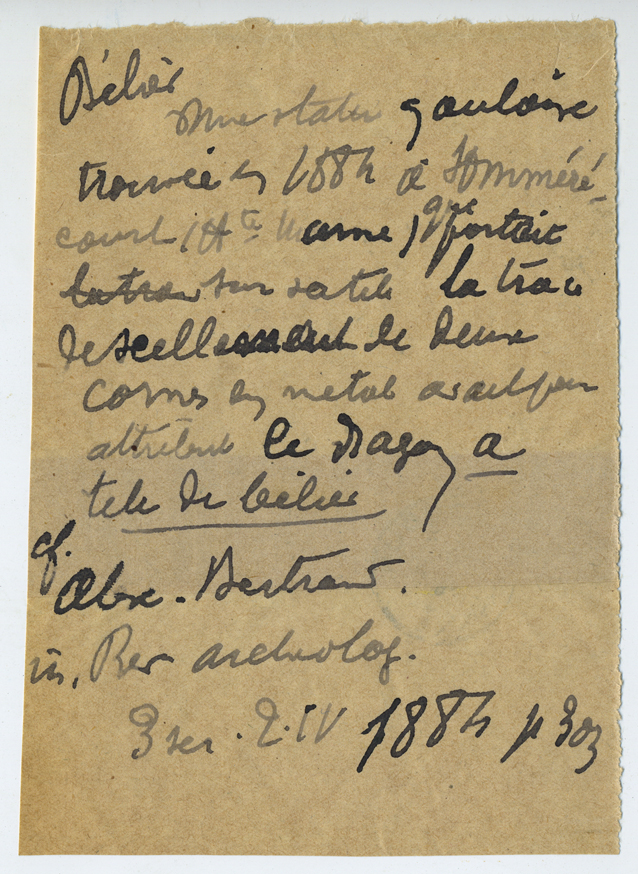 Bélier
une statue gauloise
trouvée en 1884 à Sommeré-
court (Hte Marne) que portait
la trace sur sa tete la trace
de scellement de deux
cornes en metal avait pour
attribut le dragon a
tete de bélier
cf.
Alex. Bertrand.
in. Rev archeolog.
3 ser. T. IV 1884 p 303